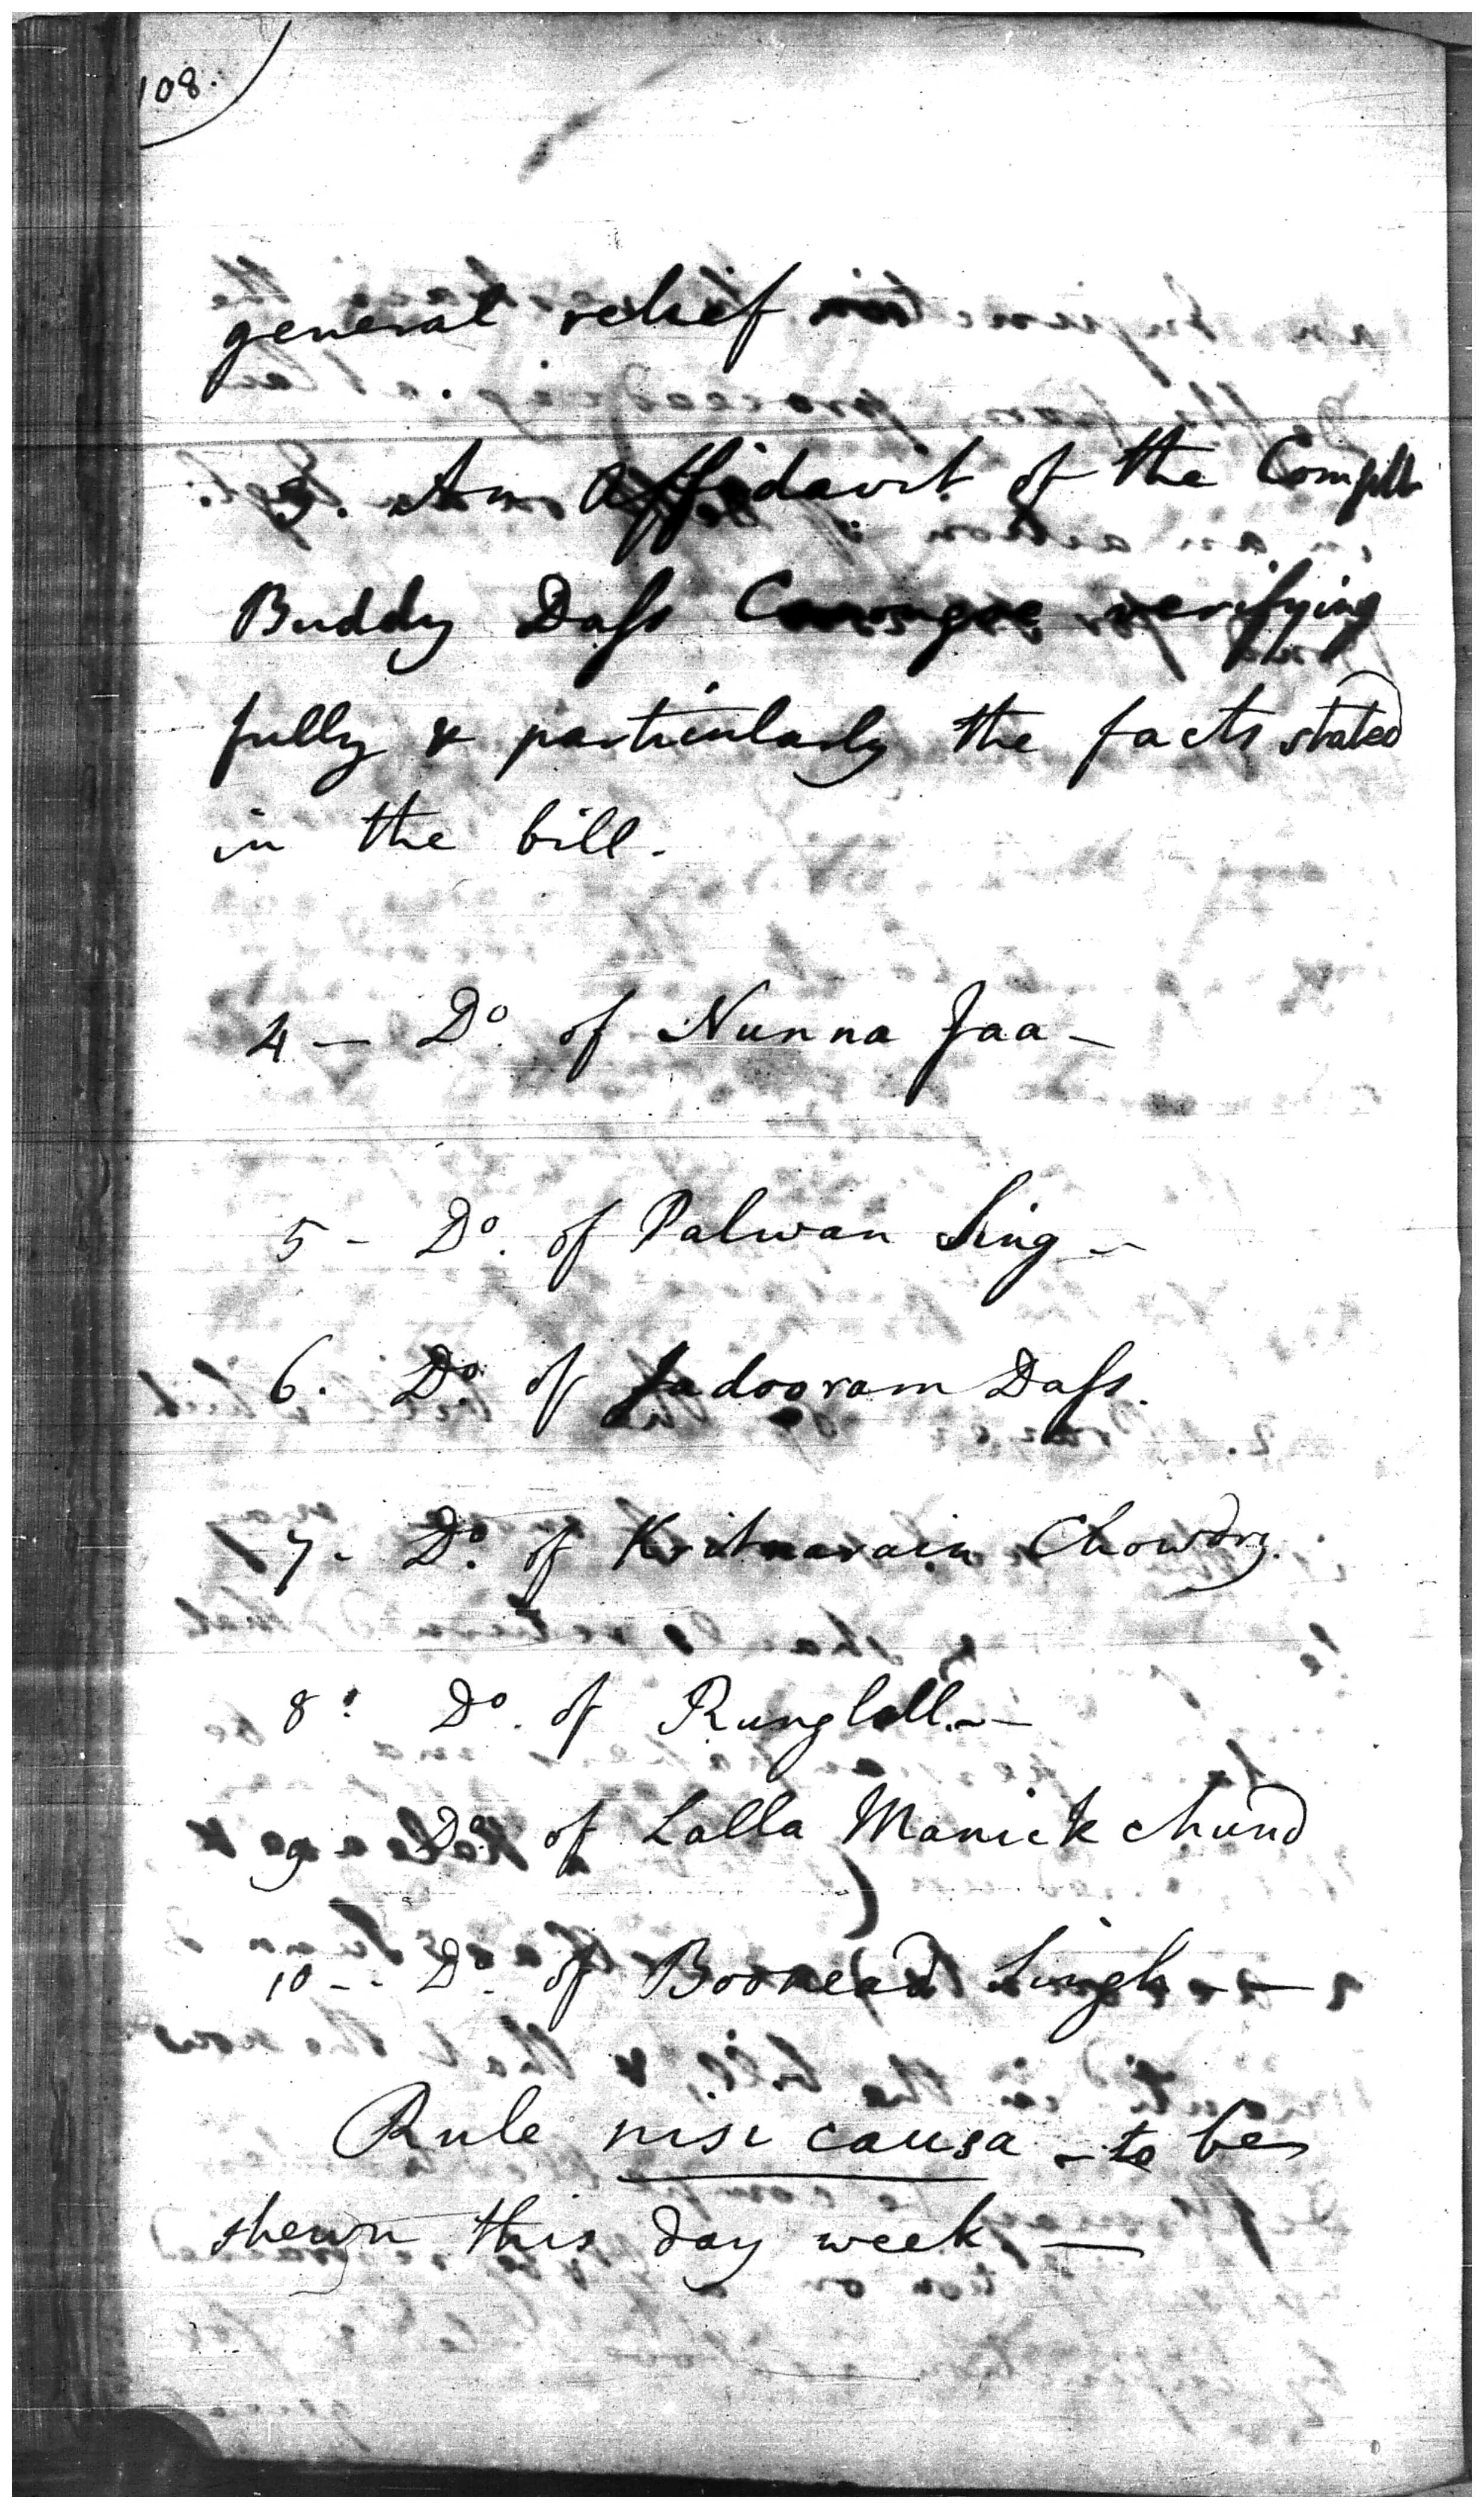 108.
general relief
3. An Affidavit of the Complt
Buddy Dass Canongoe verifying
fully & particularly the facts stated
in the bill.
4 — Do. of Nunna Jaa —
5 - Do. of Palwan Sing —
6. Do. of Jadooram Dass.
7. Do. of Kritnarain Chowdry.
8. Do. of Runglall. —
9 Do. of Lalla Manickchund
10 - Do. of Singh —
Rule nisi causa - to be
shewn this day week —